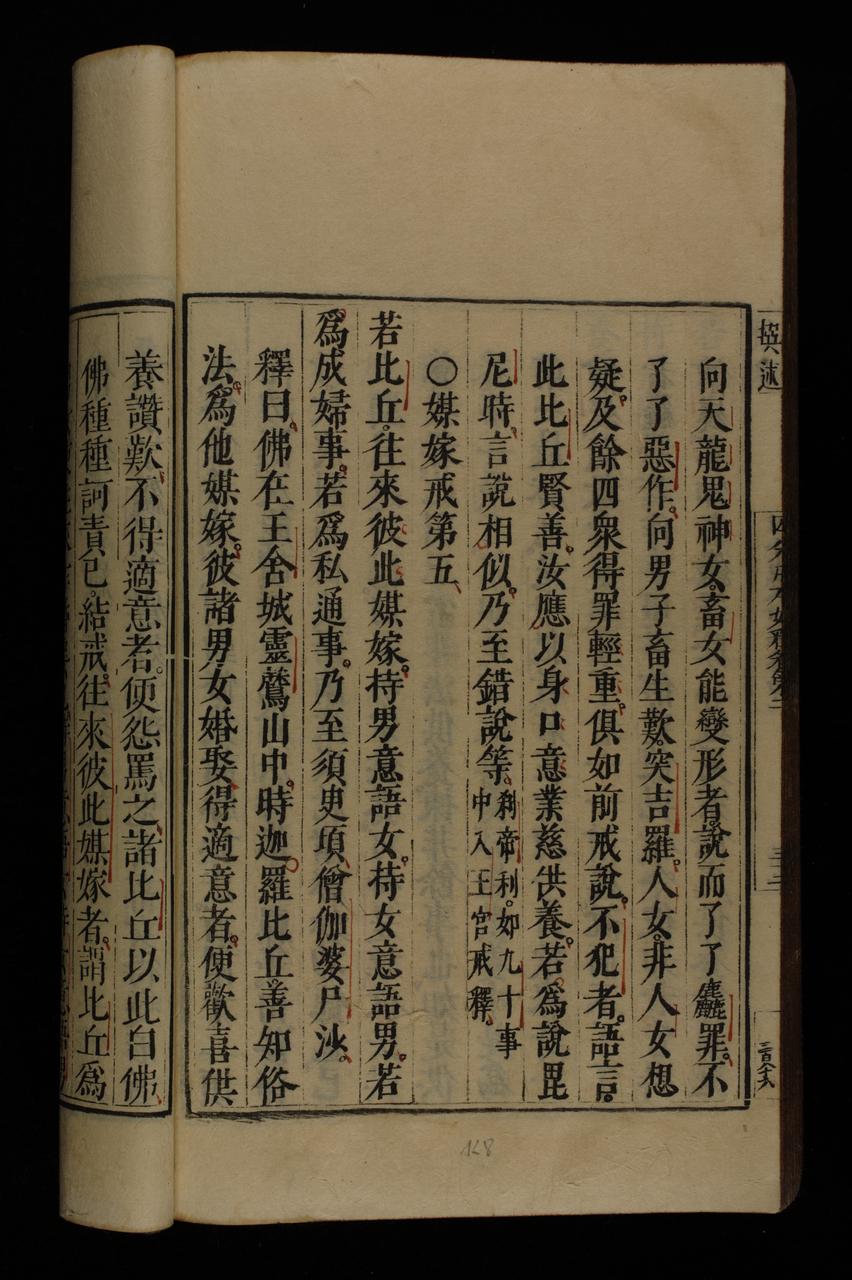 撰述
向天龍鬼神女畜女能變形者說而了了麤罪不
了了惡作向男子畜生歎突吉羅人女非人女想
疑及餘四衆得罪輕重俱如前戒說不犯者語言
此比丘賢善汝應以身口意業慈供養若爲說毘
尼時言說相似乃至錯說等刹帝利如九十事
中入王宮戒釋
○媒嫁戒第五
若比丘往來彼此媒嫁持男意語女持女意語男若
爲成婦事若爲私通事乃至須臾頃僧伽婆尸沙
釋曰佛在王舍城靈鷲山中時迦羅比丘善知俗
法爲他媒嫁彼諸男女婚娶得適意者便歡喜供
養讚歎不得適意者便怨罵之諸比丘以此白佛
佛種種訶責已結戒往來彼此媒嫁者謂比丘爲
168